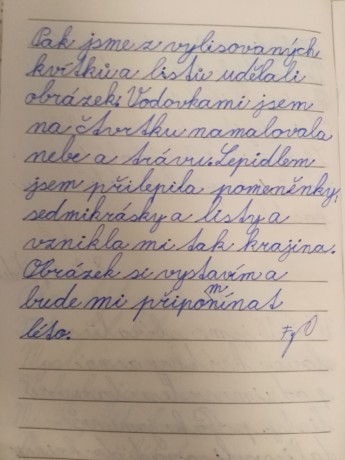 Pak jsme z vylisovaných
kvítků a listů udělali
obrázek. Vodovkami jsem
na čtvrtku namalovala
nebe a trávu. Lepidlem
jsem přilepila pomeněnky,
sedmikrásky a listy a
vznikla mi tak krajina.
Obrázek si vystavím a
bude mi připomínat
léto.